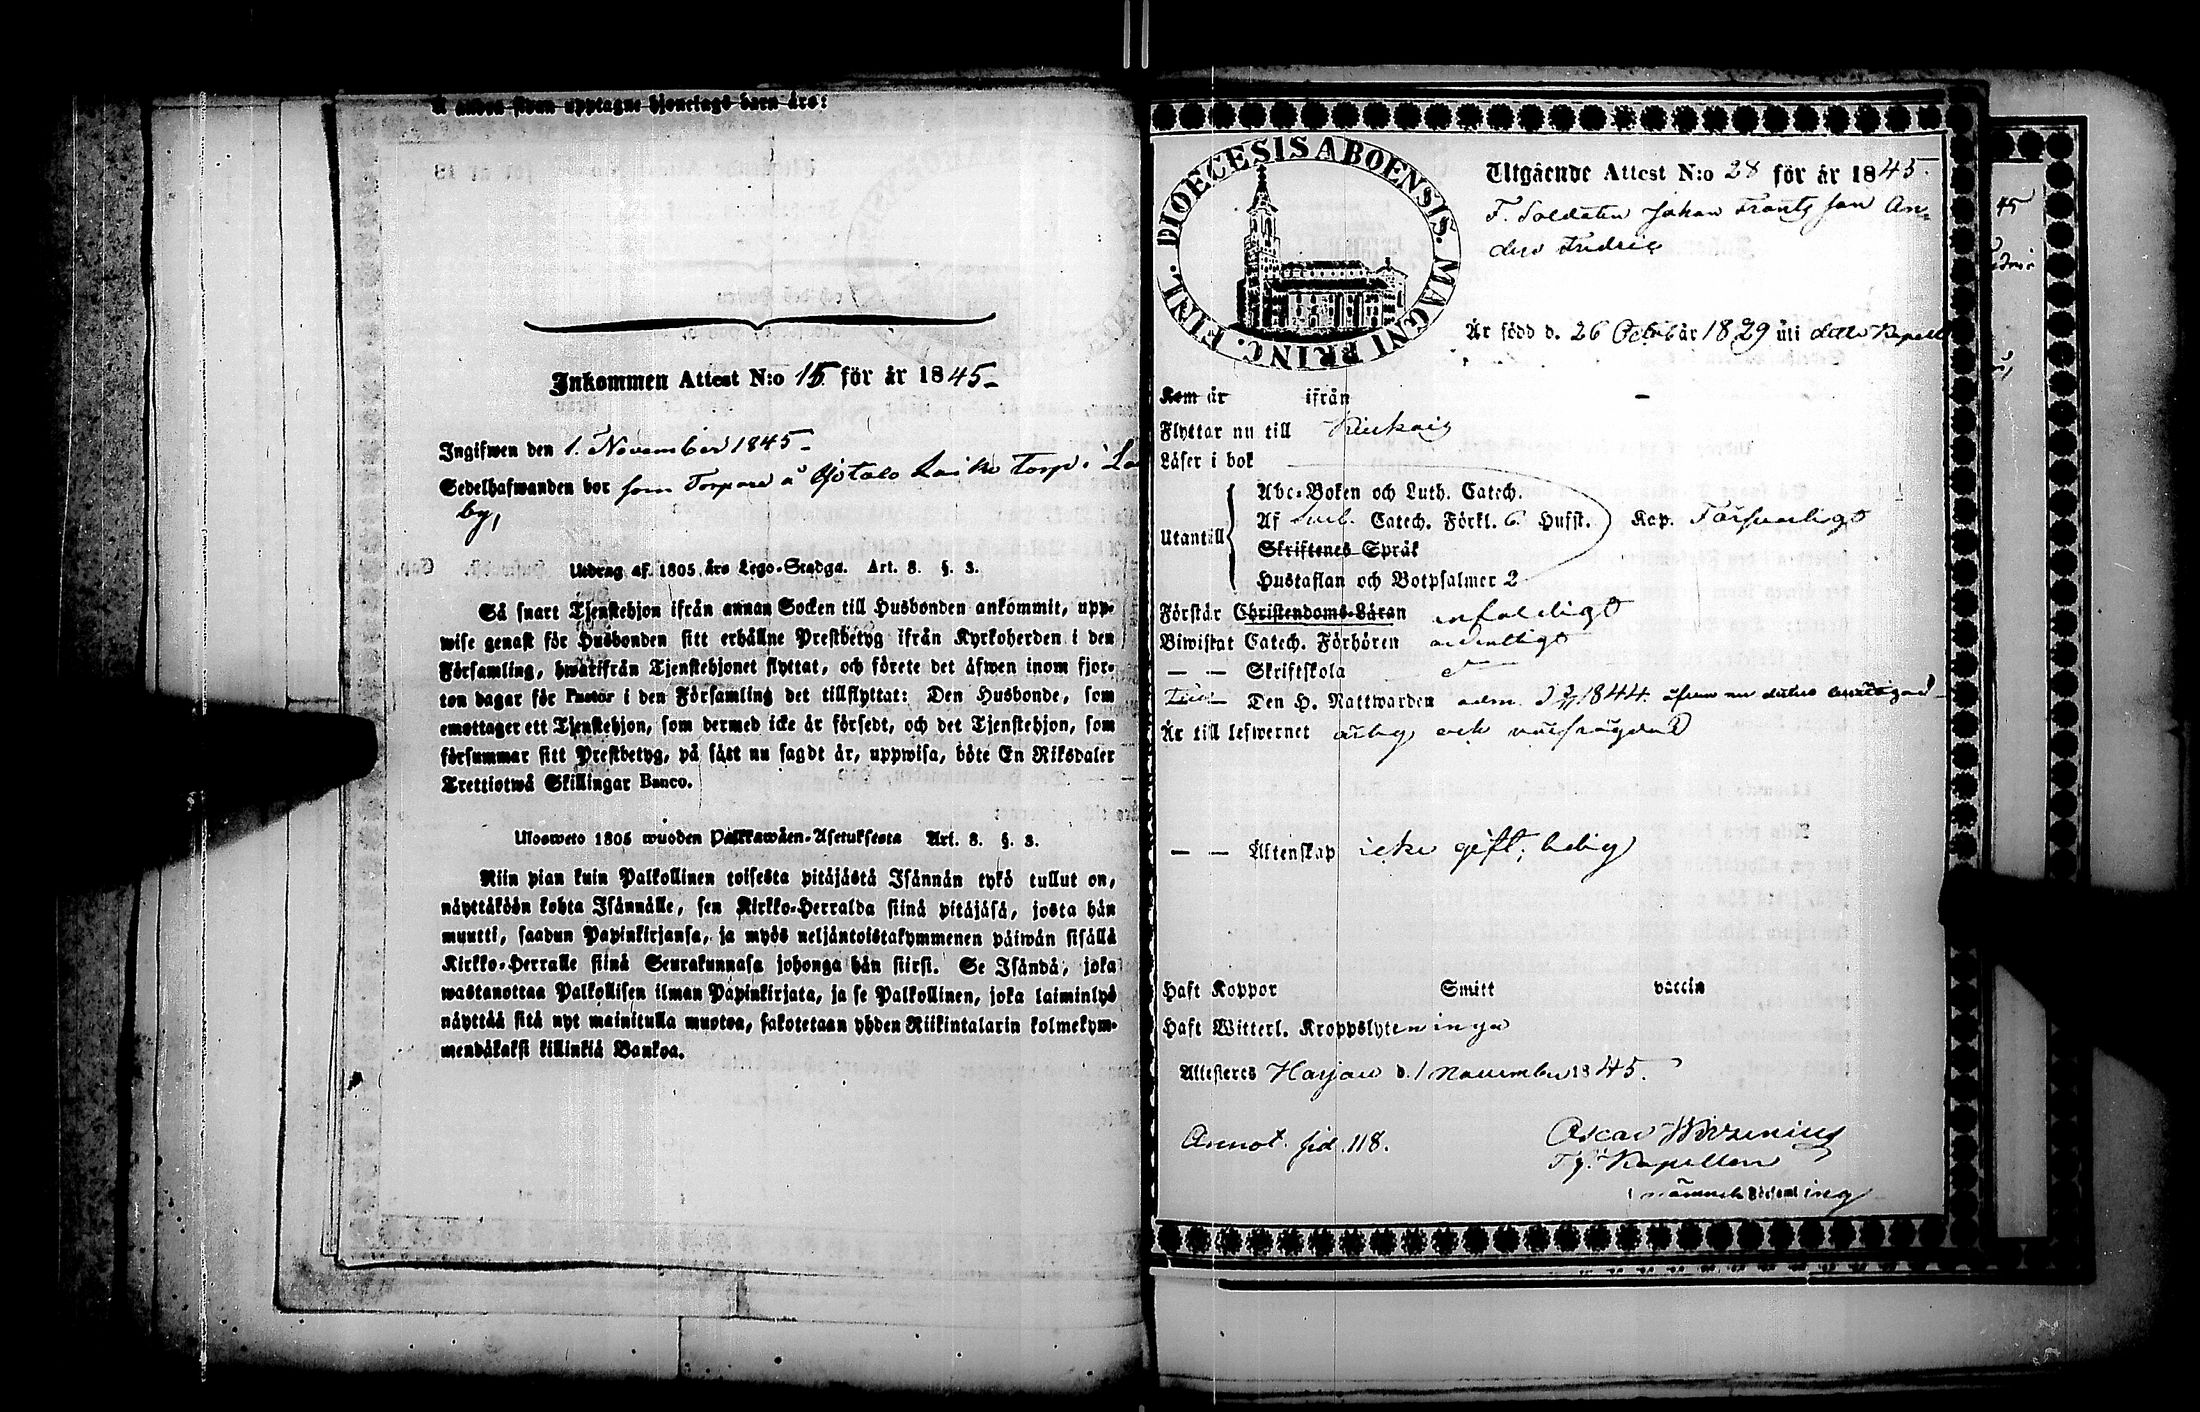 Å andra sidan upptagne hjonelags barn äro:
Inkommen Attest N:o 15 för år 1845
Ingifwen den 1. November 1845
Sedelhafwanden bor som Torpare å Torp i
by,
Utdrag af 1805 års Lego-Stadga. Art. 8. §. 3.
Så snart Tjenstehjon ifrån annan Socken till Husbonden ankommit, upp-
wise genast för Husbonden sitt erhållne Prestbetyg ifrån Kyrkoherden i den
Församling, hwarifrån Tjenstehjonet flyttat, och förete det äfwen inom fjor-
ton dagar för Pastor i den Församling det tillflyttat: Den Husbonde, som
emottager ett Tjenstehjon, som dermed icke är försedt, och det Tjenstehjon, som
försummar sitt Prestbetyg, på sätt nu sagdt är, uppwisa, böte En Riksdaler
Trettiotwå Skillingar Banco.
Ulosweto 1805 wuoden Palkkawäen-Asetuksesta Art. 8. §. 3.
Niin pian kuin Palkollinen toisesta pitäjästä Isännän tykö tullut on,
näyttäköön kohta Isännälle, sen Kirkko-Herralda siinä pitäjäsä, josta hän
muutti, saadun Papinkirjansa, ja myös neljäntoistakymmenen päiwän sisällä
Kirkko-Herralle siinä Seurakunnasa johonga hän siirsi. Se Isändä, joka
wastanottaa Palkollisen ilman Papinkirjata, ja se Palkollinen, joka laiminlyö
näyttää sitä nyt mainitulla muotoa, sakotetaan yhden Riikintalarin kolmekym-
mendäkaksi killinkiä Bankoa.
DIOECESIS ABOENSIS. MAGNI PRINC. FINL.
Utgående Attest N:o 28 för år 1845.
F. Soldaten Johan Frantz son An-
ders Fredric
Är född d. 26 Octob år 1829 uti detta Kapell
Kom år ifrån
Flyttar nu till Kiukais
Läser i bok
Abc-Boken och Luth. Catech.
Af Catech. Förkl. 6 Hufst. Kap. Försvarligt
Utantill
Skriftenes Språk
Hustaflan och Botpsalmer 2
Förstår Christendoms-Läran enfaldigt
Biwistat Catech. Förhören ordentligt
— — Skriftskola
— Den H. Nattwarden adm. 1844.
Är till lefwernet ärlig och
— — Äktenskap icke gift; ledig
Haft Koppor Smitt vaccin
Haft Witterl. Kroppslyten inga
Attesteres Harjau d. 1 November 1845.
Annot. sid. 118.
Oscar
Kapellan
i nämnde Församling